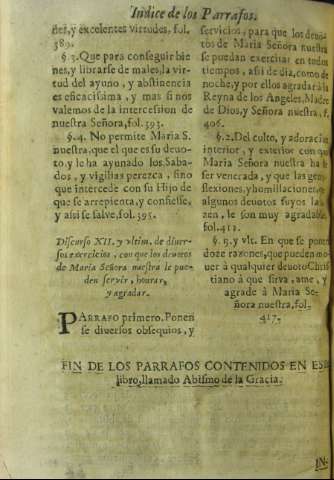 Indice de los Parrafos.
stes, y excelentes virtudes, fol.
389.
§. 3. Que para conseguir bie
nes, y librarse de males, la vir-
tud del ayuno, y abstinencia
es eficacissima, y mas si nos
valemos de la intercession de
nuestra Señora, fol. 393.
§. 4. No permite Maria S.
nuestra, que el que es su devo-
to, y le ha ayunado los Saba-
dos, y vigilias perezca, sino
que intercede con su Hijo de
que se arrepienta, y confiesse,
y assi se salve, fol. 395.
Discurso XII. y vltim. de diuer-
sos exercicios, con que los deuotos
de Maria Señora nuestra le pue-
den servir, honrar,
y agradar.
PARRAFO primero. Ponen
se diversos obsequios, y
servicios, para que los deuo-
tos de Maria Señora nuestra
se puedan exercitar en todos
tiempos, assi de dia, como de
noche, y por ellos agradar à la
Reyna de los Angeles, Madre
de Dios, y Señora nuestra, f.
406.
§. 2. Del culto, y adoracion
interior, y exterior con que
Maria Señora nuestra ha de
ser venerada, y que las genu-
flexiones, y homillaciones, que
algunos deuotos suyos la ha-
zen, le son muy agradables,
fol. 412.
§. 3. y vlt. En que se ponen
doze razones, que pueden mo-
uer à qualquier deuoto Chris-
tiano à que sirva, ame, y
agrade à Maria Se-
ñora nuestra, fol.
417.
FIN DE LOS PARRAFOS CONTENIDOS EN ESTE
libro, llamado Abismo de la Gracia.
IN-